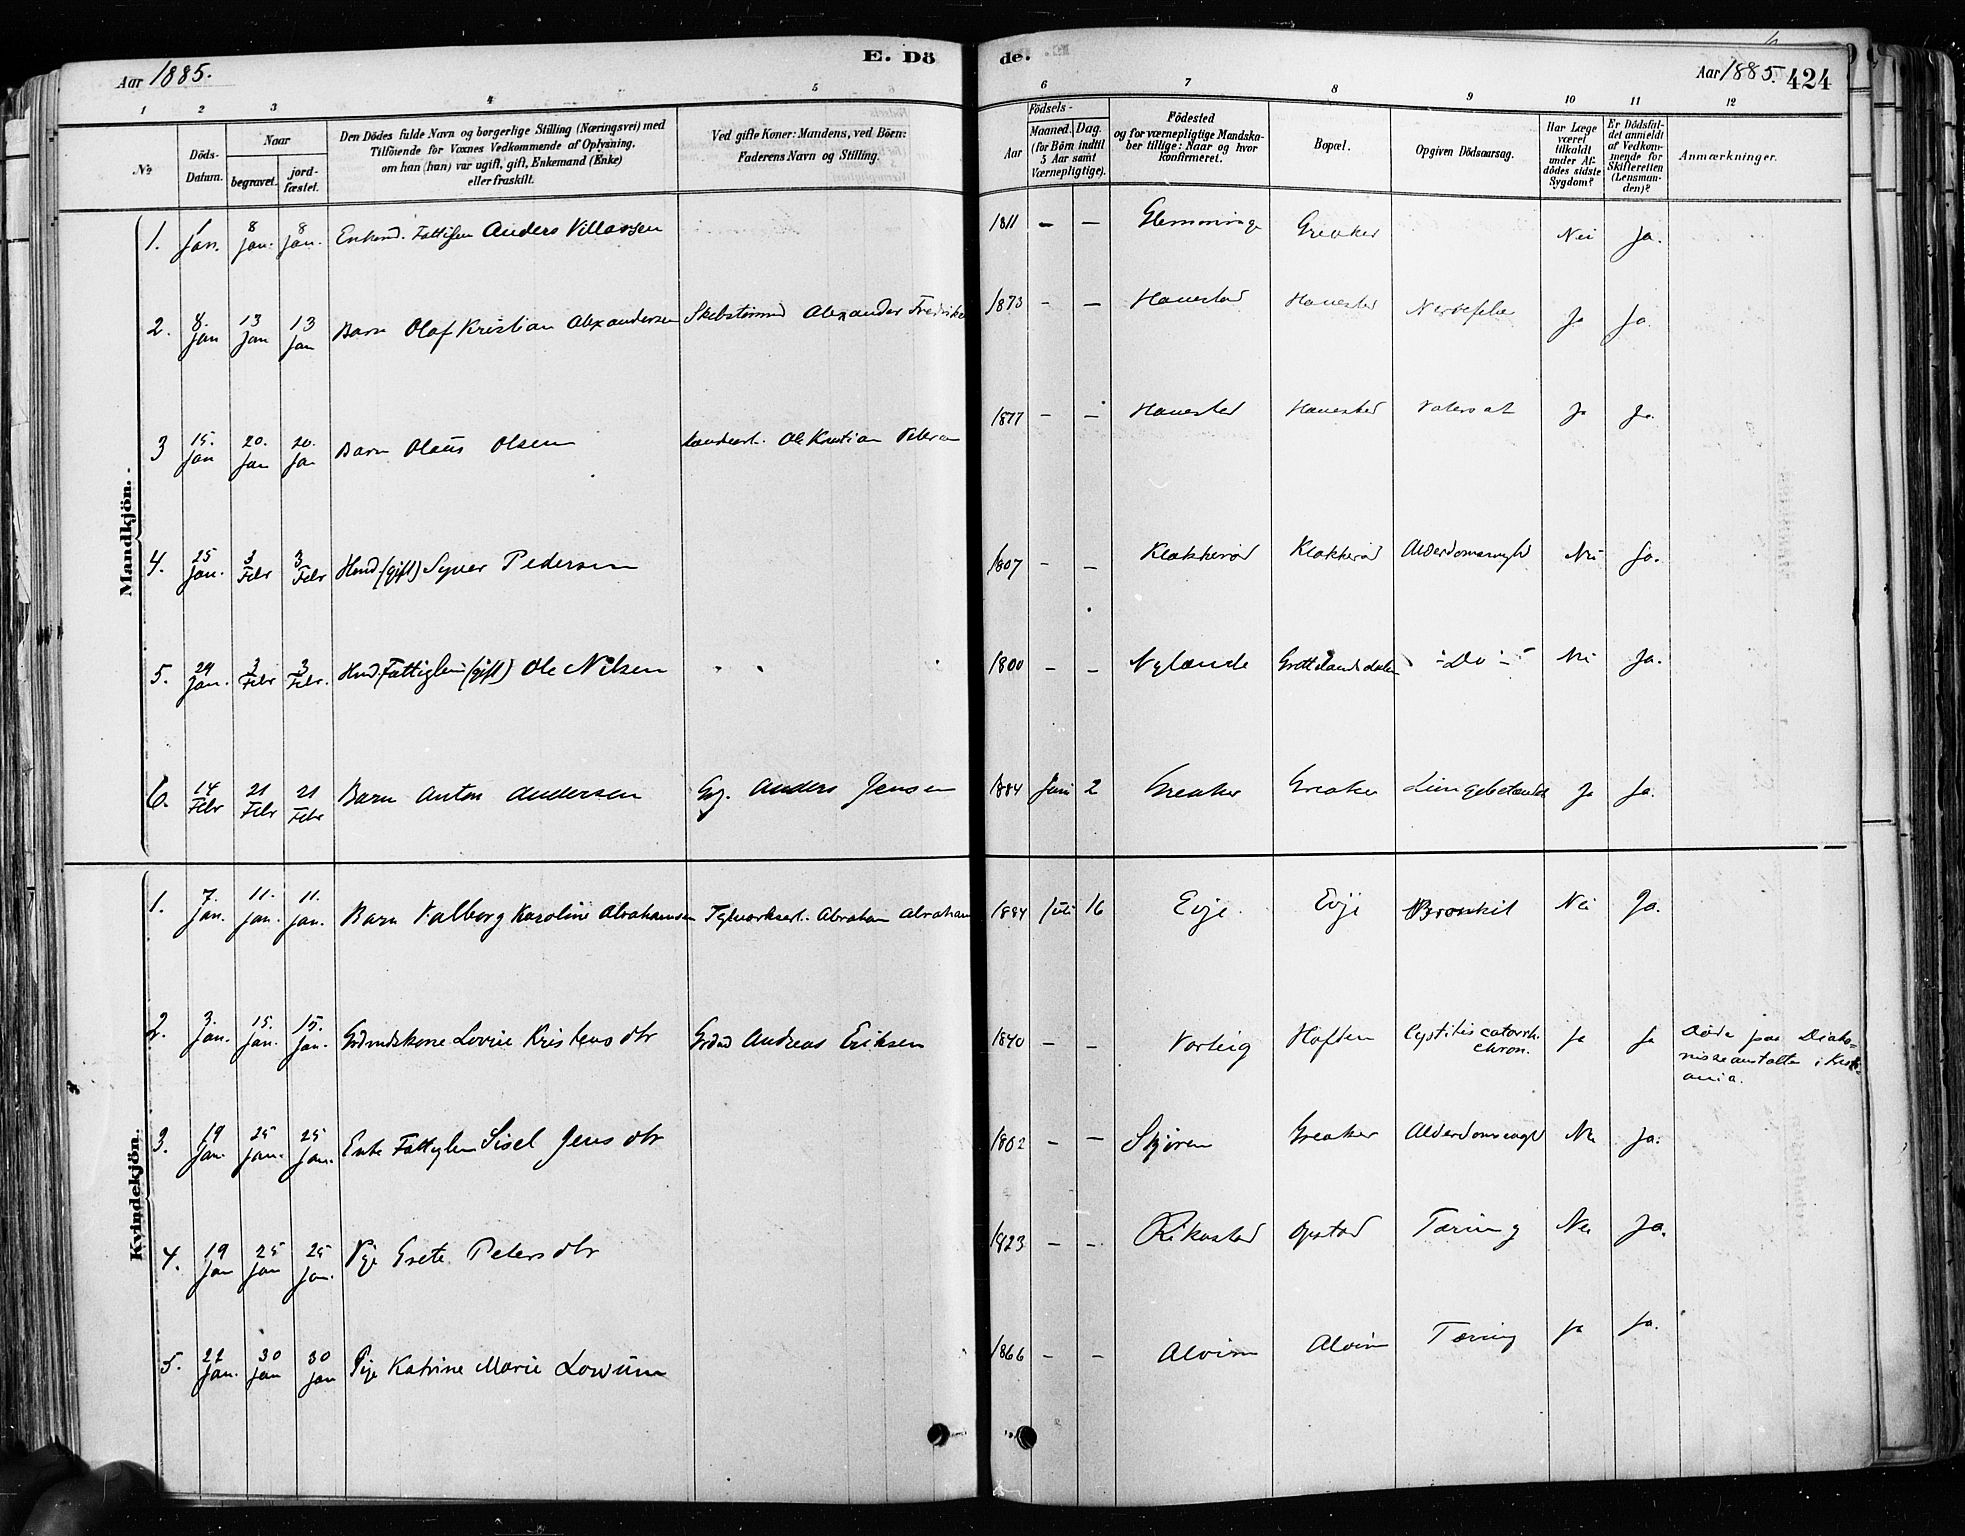 E. Dö de.
Aar 1885.
Aar 1885. 424
1 2 3 4 5 6 7 8 9 10 11 12
No
Döds-Datum.
Naar
begravet.
jord-fæstet.
Den Dödes fulde Navn og borgerlige Stilling (Næringsvei) med
Tilföiende for Voxnes Vedkommende af Oplysning,
om han (hun) var ugift, gift, Enkemand (Enke)
eller fraskilt.
Ved gifte Koner: Mandens, ved Börn:
Faderens Navn og Stilling.
Födsels-
Aar
Maaned. Dag.
(for Börn indtil
5 Aar samt
Værnepligtige).
Födested
og for værnepligtige Mandska-
ber tillige: Naar og hvor
konfirmeret.
Bopæl.
Opgiven Dödsaarsag.
Har Læge
været
tilkaldt
under Af-
dödes sidste
Sygdom?
Er Dödsfal-
det anmeldt
af Vedkom-
mende for
Skifteretten
(Lensman-
den)?
Anmærkninger.
Mandkjön.
1. Jan. 8 Jan. 8 Jan. Anders 1811 — — Glemminge Greaker Nei Ja.
2. 8. Jan 13 Jan 13 Jan Barn Olaf Kristian Alexandersen Alexander 1873 - — Hauestad Hauestad Ja Ja.
3 15. Jan 20. Jan 20. Jan Barn Olaus Olsen Ole Kristian 1877 - — Hauestad Hauestad Ja Ja.
4. 25 Jan. 3 Febr 3 Febr (gift) Syver Pedersen 1807 - - Klakkerød Klakkerød Nei Ja.
5. 29 Jan. 3 Febr 3 Febr. (gift) Ole Nilsen 1800 - - Nylænde -Do- Nei Ja.
6. 14 Febr 21 Febr 21 Febr Barn Anton Andersen Anders Jensen 1884 Juni 2 Greaker Greaker Ja Ja.
Kvindekjön.
1. 7. Jan. 11. Jan. 11. Jan. Barn Valborg Karoline Abrahamsen Abraham 1884 Juli 16 Evje. Evje Bronkit Nei Ja.
2. 3. Jan. 15. Jan. 15. Jan. Kristensdtr Andreas Eriksen 1840 - - Varteig Haften Cystitis catarrh. chron. Ja Ja Døde paa Diako-
nisseanstalten i Kristi-
ania.
3. 19 Jan 25 Jan. 25 Jan. Enke Sisel Jensdtr 1802 - — Skjøren Greaker Nei Ja.
4. 19 Jan 25 Jan 25 Jan. Pige Grete Petersdtr 1823 - - Opstad Tæring Nei Ja.
5. 22 Jan. 30 Jan 30 Jan Pige Katrine Marie 1866 - - Alvim Alvim Tæring Ja Ja.